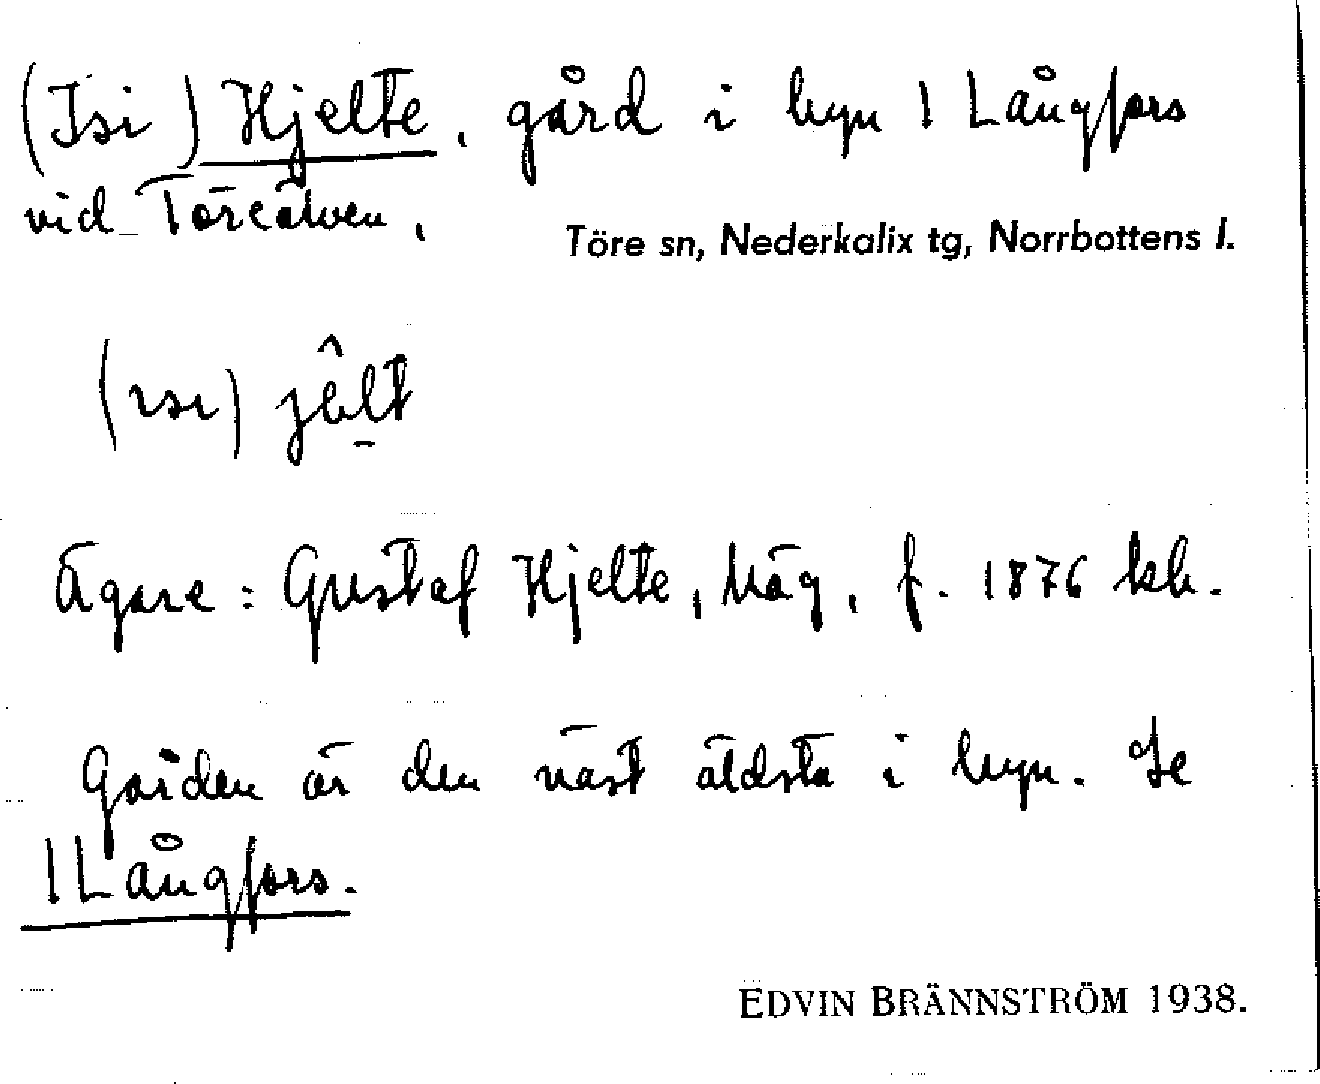 (Isi) Hjelte, gård i byn 1 Långfors
vid Töreälven,
Töre sn, Nederkalix tg, Norrbottens l.
(ɪsɪ) jêl̠t
Ägare: Gustaf Hjelte, häg, f. 1876 hb.
Gården är den näst äldsta i byn. Se
1 Långfors.
EDVIN BRÄNNSTRÖM 1938.